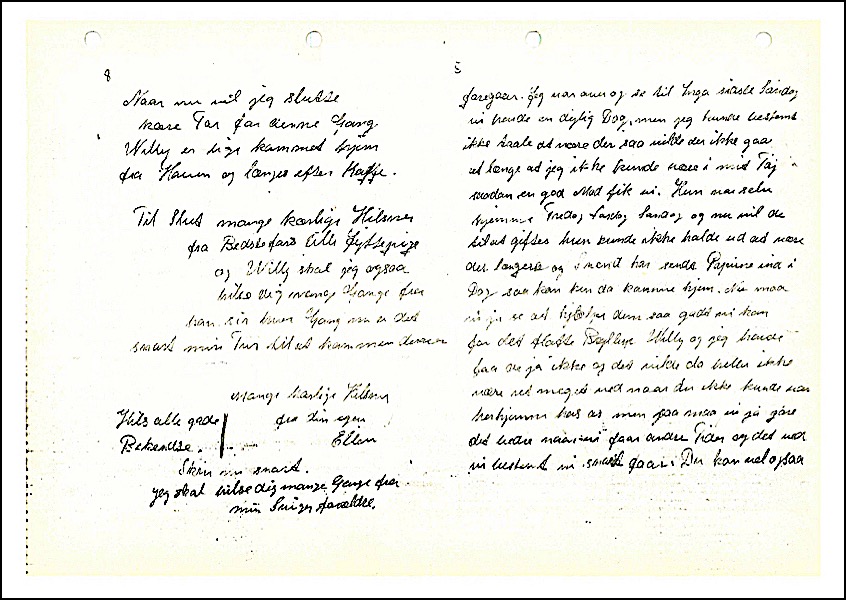 8
Naar nu vil jeg slutte
kære Far for denne Gang
Willy er lige kommet hjem
fra Haven og længes efter Kaffe.
Til Slut mange kærlige Hilsner
fra Bedstefars lille
og Willy skal jeg ogsaa
hilse dig mange Gange fra
han siger hver Gang nu er det
snart min Tur til at komme derover
Mange kærlige Hilsner
fra din egen
Ellen
Hils alle gode
Bekendte.
Skriv nu snart.
jeg skal hilse dig mange Gange fra
min Svigerforældre.
5
foregaar. Jeg var ovre og se til Inga sidste Søndag
vi havde en dejlig Dag, men jeg kunde bestemt
ikke taale at være der saa vilde der ikke gaa
ret længe at jeg ikke kunde være i mit Tøj
saadan en god Mad fik vi. Hun var selv
hjemme Fredag Lørdag Søndag og nu vil de
til at giftes hun kunde ikke holde ud at være
der længere og Svend har sendt Papirerne ind i
Dag saa kan hun da komme hjem. Nu maa
vi jo se at hjælpe dem saa godt vi kan
for det Bryllup Willy og jeg havde
faar de jo ikke og det vilde da heller ikke
være ret meget ved naar du ikke kunde være
herhjemme hos os men saa maa vi jo gøre
det bedre naar vi faar andre Tider og det ved
vi bestemt vi snart faar. Du kan vel ogsaa